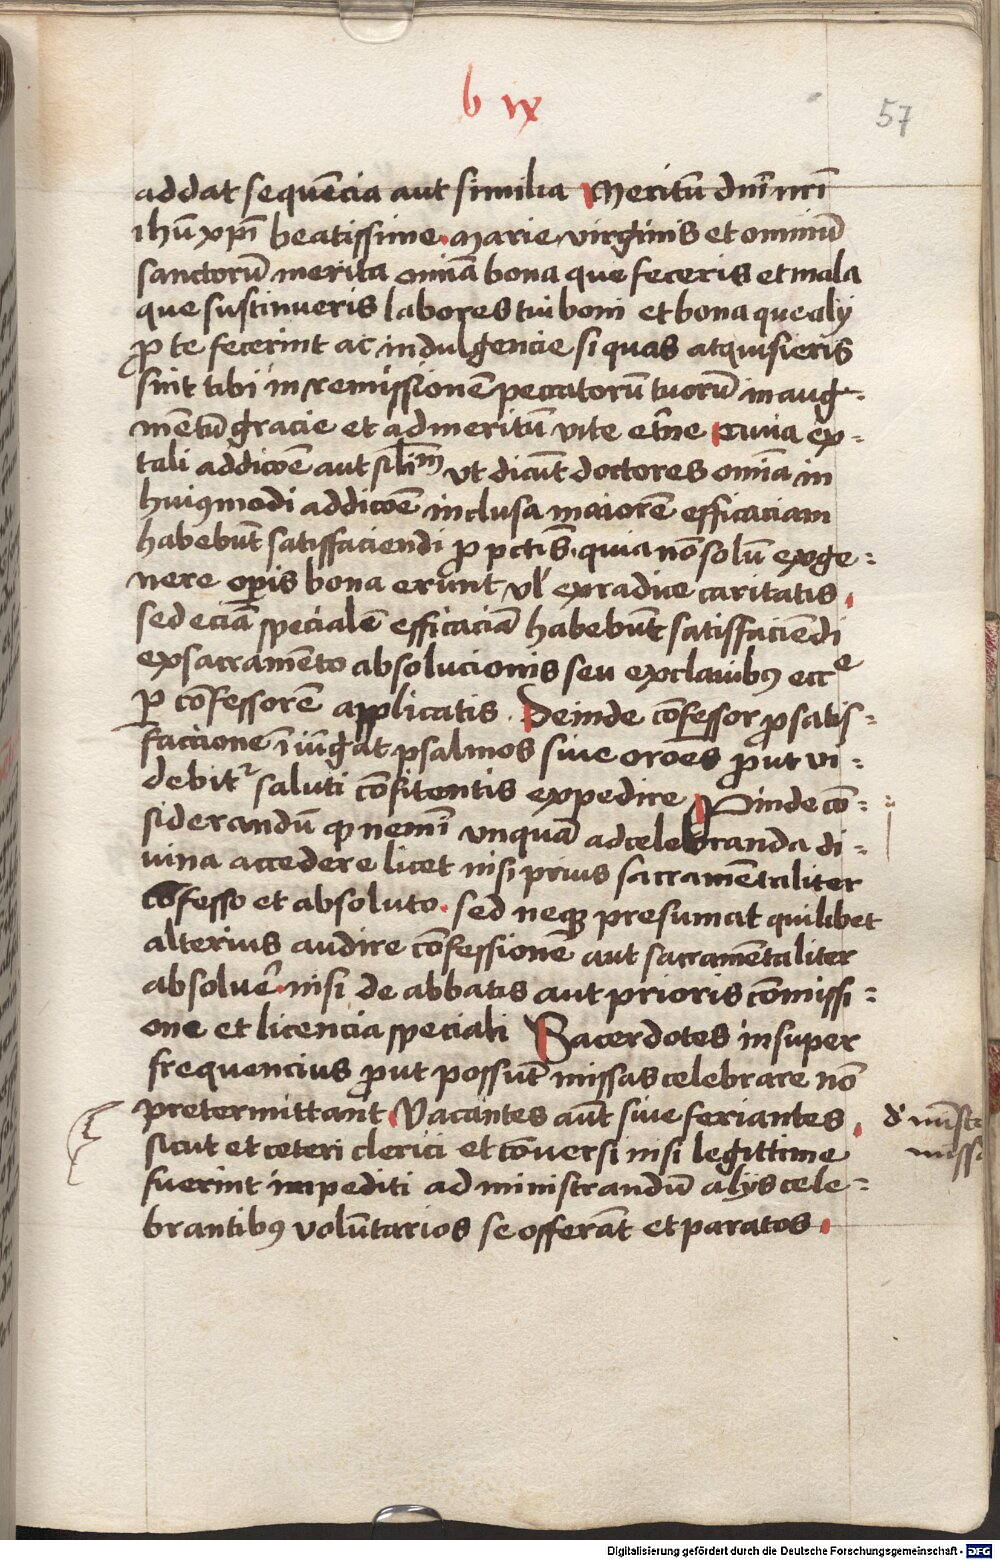 b ix
57
addat sequēcia aut similia Meritū dn̄i nr̄i
ihū xp̄i beatissime Marie virginis et omniū
sanctorū merita om̄ia bona que feceris et mala
que sustinueris labores tui boni et bona que alij
ꝓ te fecerint ac indulgencie si quas atquisieris
sint tibi in remissionē peccatorū tuorū in aug-
mētū gracie et ad meritū vite et̄ne
tali addicōe aut sil̄im vt dicūt doctores om̄ia in
huiꝰmodi addicōe inclusa maiorē efficaciam
habebūt satisfaciendi ꝓ pctīs quia nō solū ex ge-
nere oꝑis bona erunt vl' ex radice caritatis
sed eciā specialē efficaciā habebūt satisfaciēdi
ex sacramēto absolucionis seu ex clauibꝰ ecce
ꝑ cōfessorē applicatis. Deinde cōfessor ꝓ satis-
faccione īiūgat psalmos siue orōes ꝓut vi-
debitr saluti cōfitentis expedire Proinde cō-
siderandū ꝙ nemī vnquā ad celebranda di-
uina accedere licet nisi prius sacramētaliter
cōfesso et absoluto. sed neqꝫ presumat quilibet
alterius audire cōfessionē aut sacramētaliter
absoluēr nisi de abbatis aut prioris cōmissi-
one et licencia speciali Sacerdotes insuper
frequencius ꝓut possūt missas celebrare nō
pretermittant Vacantes aūt siue feriantes
sicut et ceteri clerici et cōuersi nisi legittime
fuerint impediti ad ministrandū alijs cele-
brantibꝰ volūtarios se offerāt et paratos.
Digitalisierung gefördert durch die Deutsche Forschungsgemeinschaft - DFG